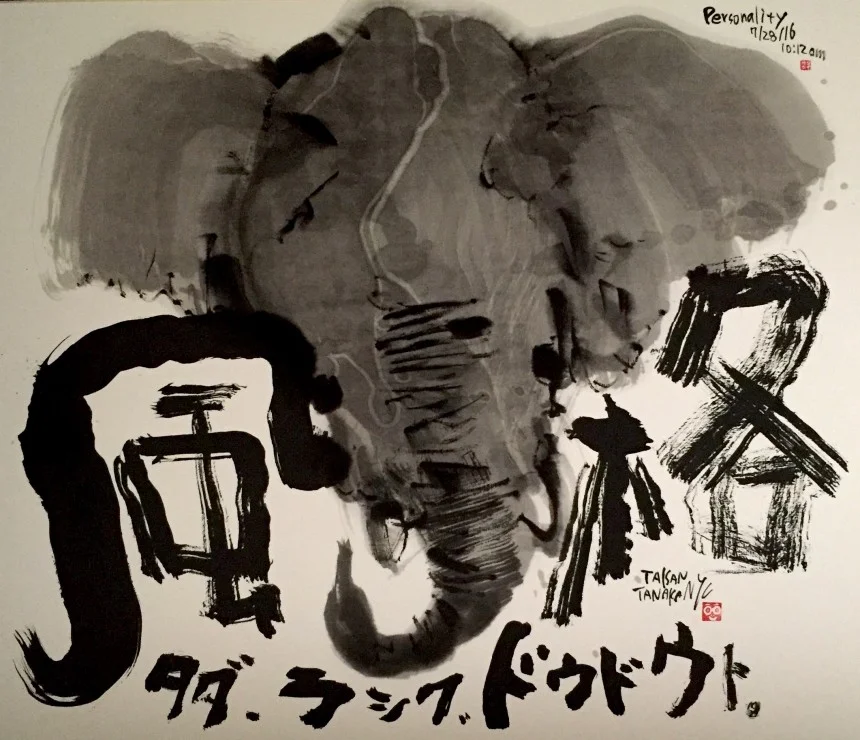 Personality
7/28/16
10:12am
風格
TAISAN
TANAKA NYC
タダ、ラシク、ドウドウト。